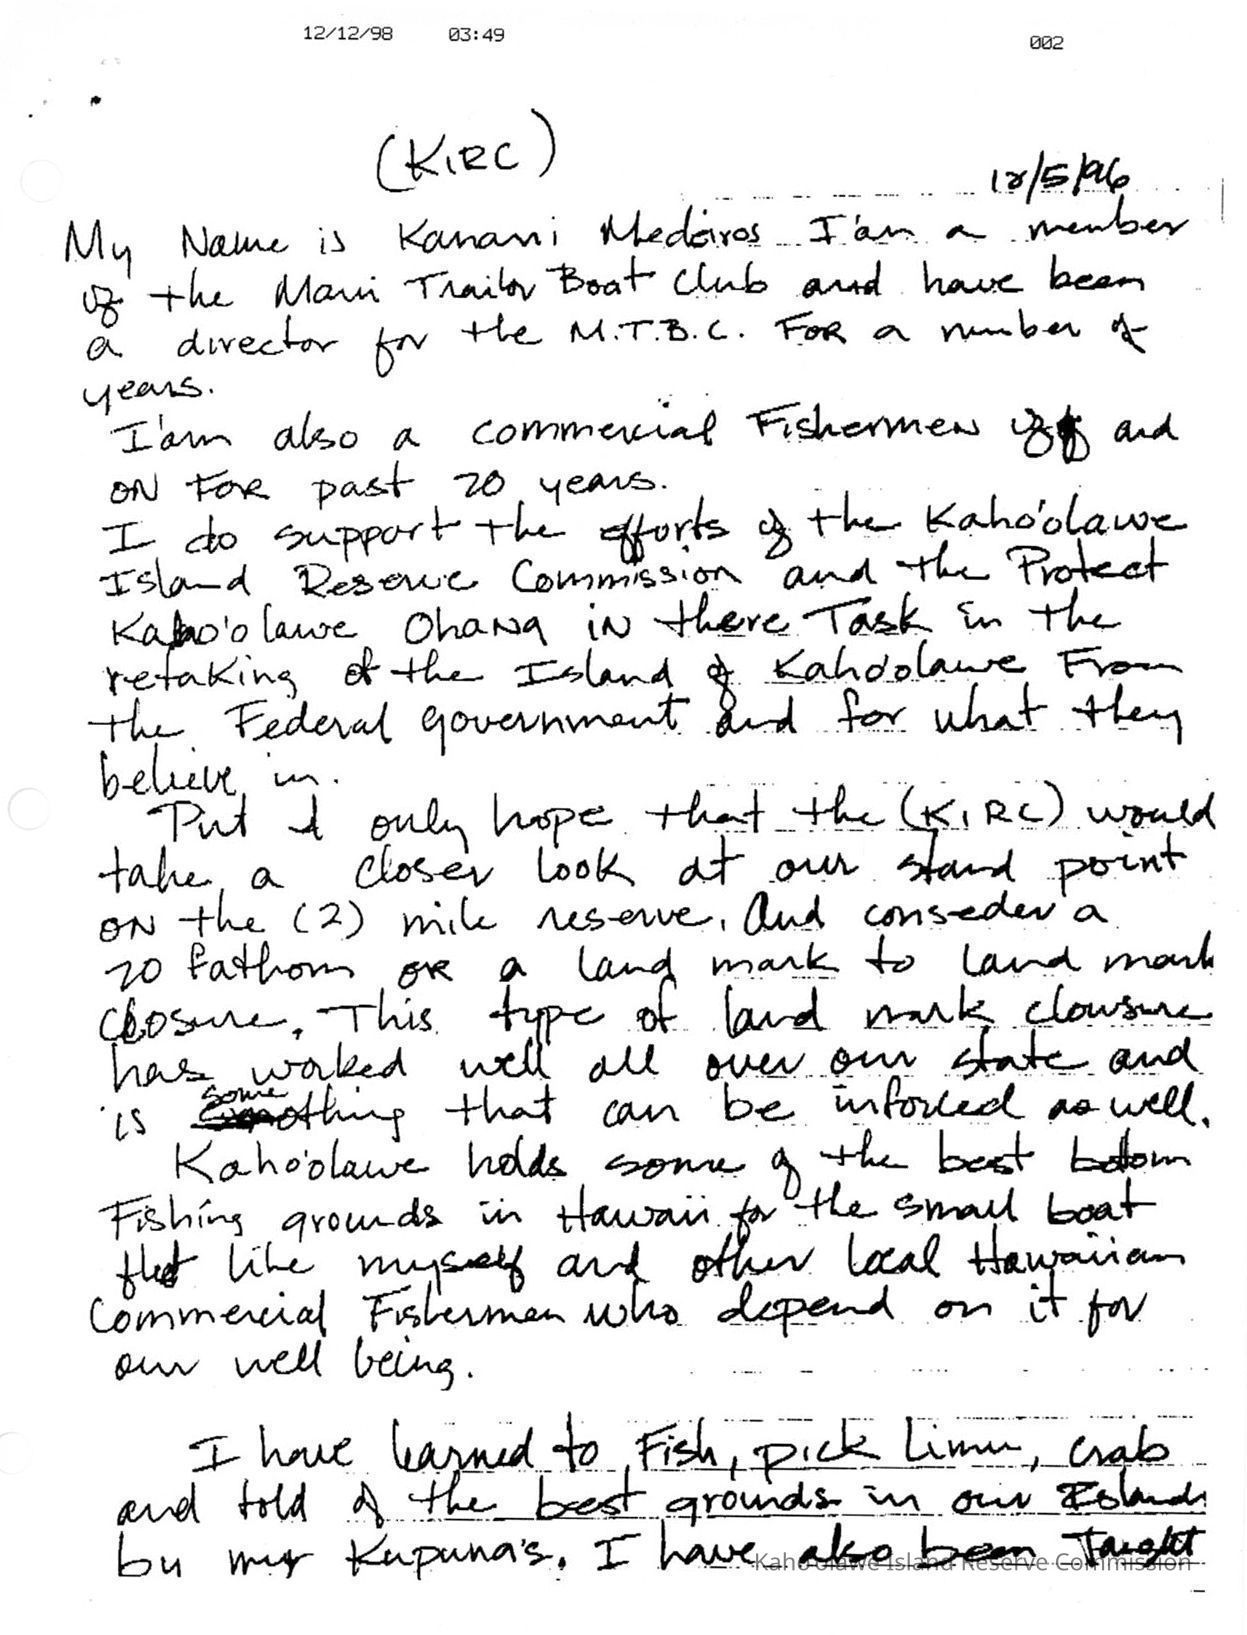 12/12/98 03:49 002
(KIRC)
12/5/96
My Name is Kanani Medeiros I'am a member
of the Maui Trailor Boat Club and have been
a director for the M.T.B.C. FOR a number of
years.
I'am also a commercial Fishermen off and
ON FOR past 20 years.
I do support the efforts of the Kaho'olawe
Island Reserve Commission and the Protect
Kaho'olawe Ohana in there Task in the
retaking of the Island of Kaho'olawe From
the Federal government and for what they
believe in.
But I only hope that the (KIRC) would
take a closer look at our stand point
ON the (2) mile reserve. And conseder a
20 fathom OR a land mark to land mark
closure. This type of land mark clowsure
has worked well all over our state and
is something that can be inforced as well.
Kaho'olawe holds some of the best bottom
Fishing grounds in Hawaii for the small boat
fleet like myself and other local Hawaiian
Commercial Fishermen who depend on it for
our well being.
I have learned to Fish, pick limu, crab
and told of the best grounds in our Islands
by my Kupuna's. I have also been Taught
Kaho'olawe Island Reserve Commission